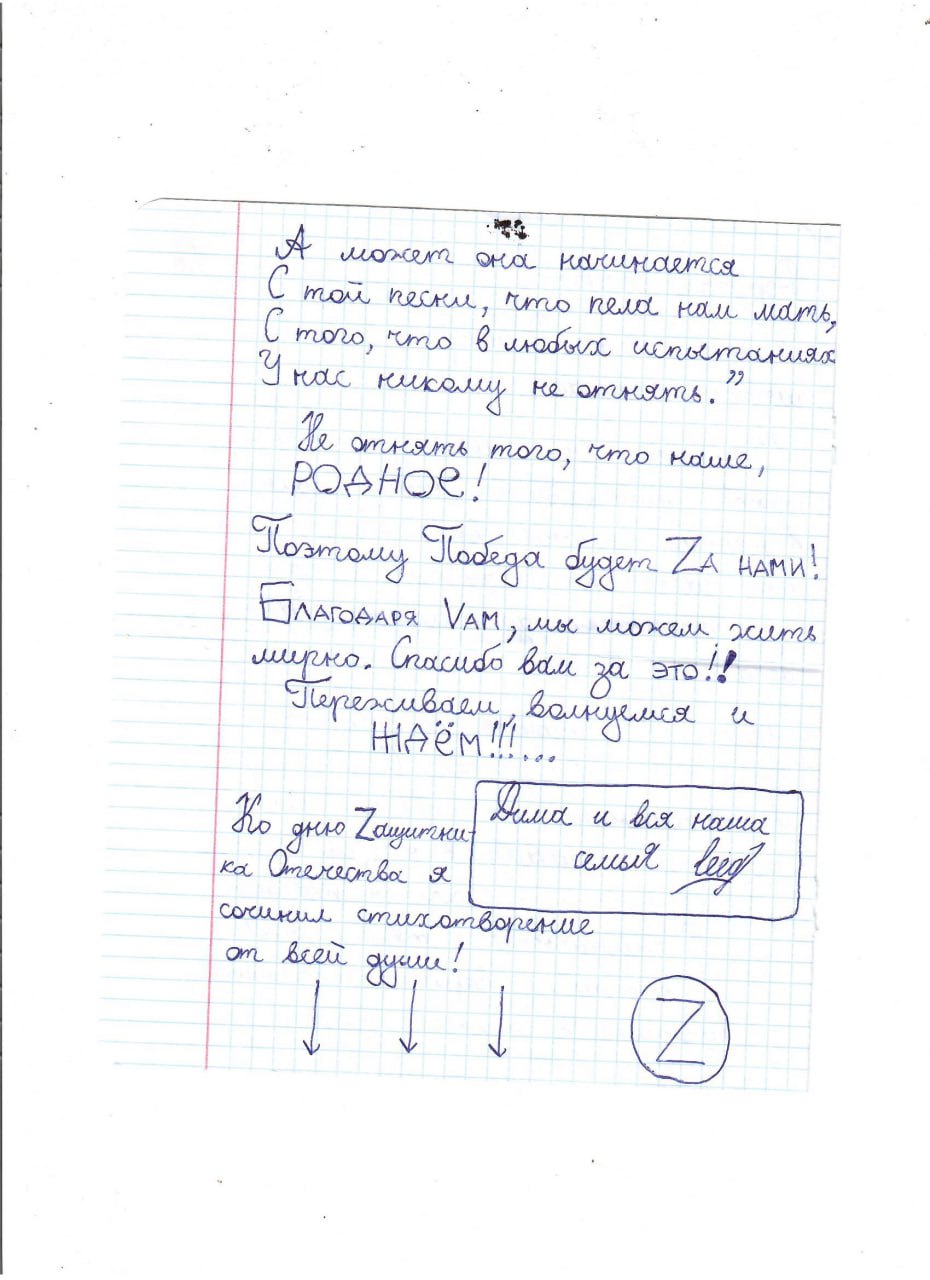 А может она начинается
С той песни, что пела нам мать,
С того, что в любых испытаниях
У нас никому не отнять."
Не отнять того, что наше,
РОДНОЕ!
Поэтому Победа будет ZА НАМИ!
БЛАГОДАРЯ VАМ, мы можем жить
мирно. Спасибо вам за это!!
Переживаем, волнуемся и
ЖДЁМ!!!...
Дима и вся наша
семья
Ко дню Zащитни-
ка Отечества я
сочинил стихотворение
от всей души!
Z